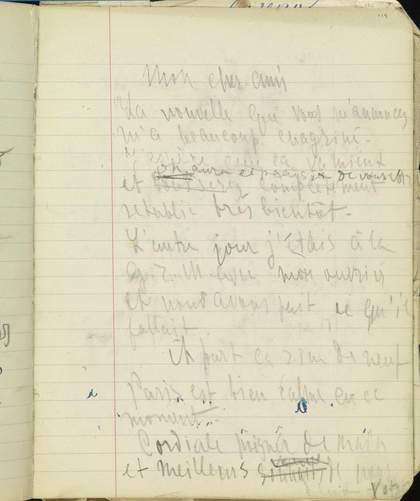 Mon cher ami
La nouvelle que vous m'annoncez
m'a beaucoup chagriné.
J'espère que ça va mieux
on aura le plaisir de vous
et complètement
rétablie très bientôt.
L'autre jour j'étais à la
avec mon ouvrier
et nous avons fait ce qu'il
fallait.
A part ça rien de neuf
Paris est bien calme en ce
moment.
Cordiale poignée de main
et meilleurs